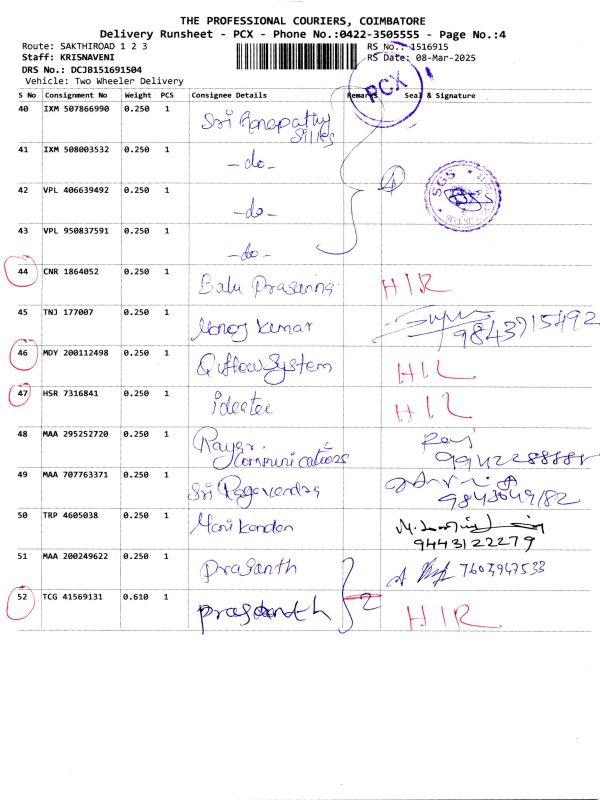 THE PROFESSIONAL COURIERS, COIMBATORE
Delivery Runsheet - PCX - Phone No.:0422-3505555 - Page No.:4
Route: SAKTHIROAD 1 2 3
RS No.: 1516915
Staff: KRISNAVENI
RS Date: 08-Mar-2025
DRS No.: DCJB151691504
Vehicle: Two Wheeler Delivery
PCX
S No Consignment No Weight PCS Consignee Details Remarks Seal & Signature
40 IXM 507866990 0.250 1 Sri Ganapathy Silks
41 IXM 508003532 0.250 1 -do-
4
SGS
42 VPL 406639492 0.250 1 -do-
43 VPL 950837591 0.250 1 -do-
44 CNR 1864052 0.250 1 Balu HIR
45 TNJ 177007 0.250 1 Manoj Kumar 9843715492
46 MDY 200112498 0.250 1 Q flow System
47 HSR 7316841 0.250 1
48 MAA 295252720 0.250 1 Communications
49 MAA 707763371 0.250 1 Sri Ragavendra
50 TRP 4605038 0.250 1 Mani Kandan 9443122279
51 MAA 200249622 0.250 1 Prasanth 7603947533
52 TCG 41569131 0.610 1 Prasanth 2 HIR